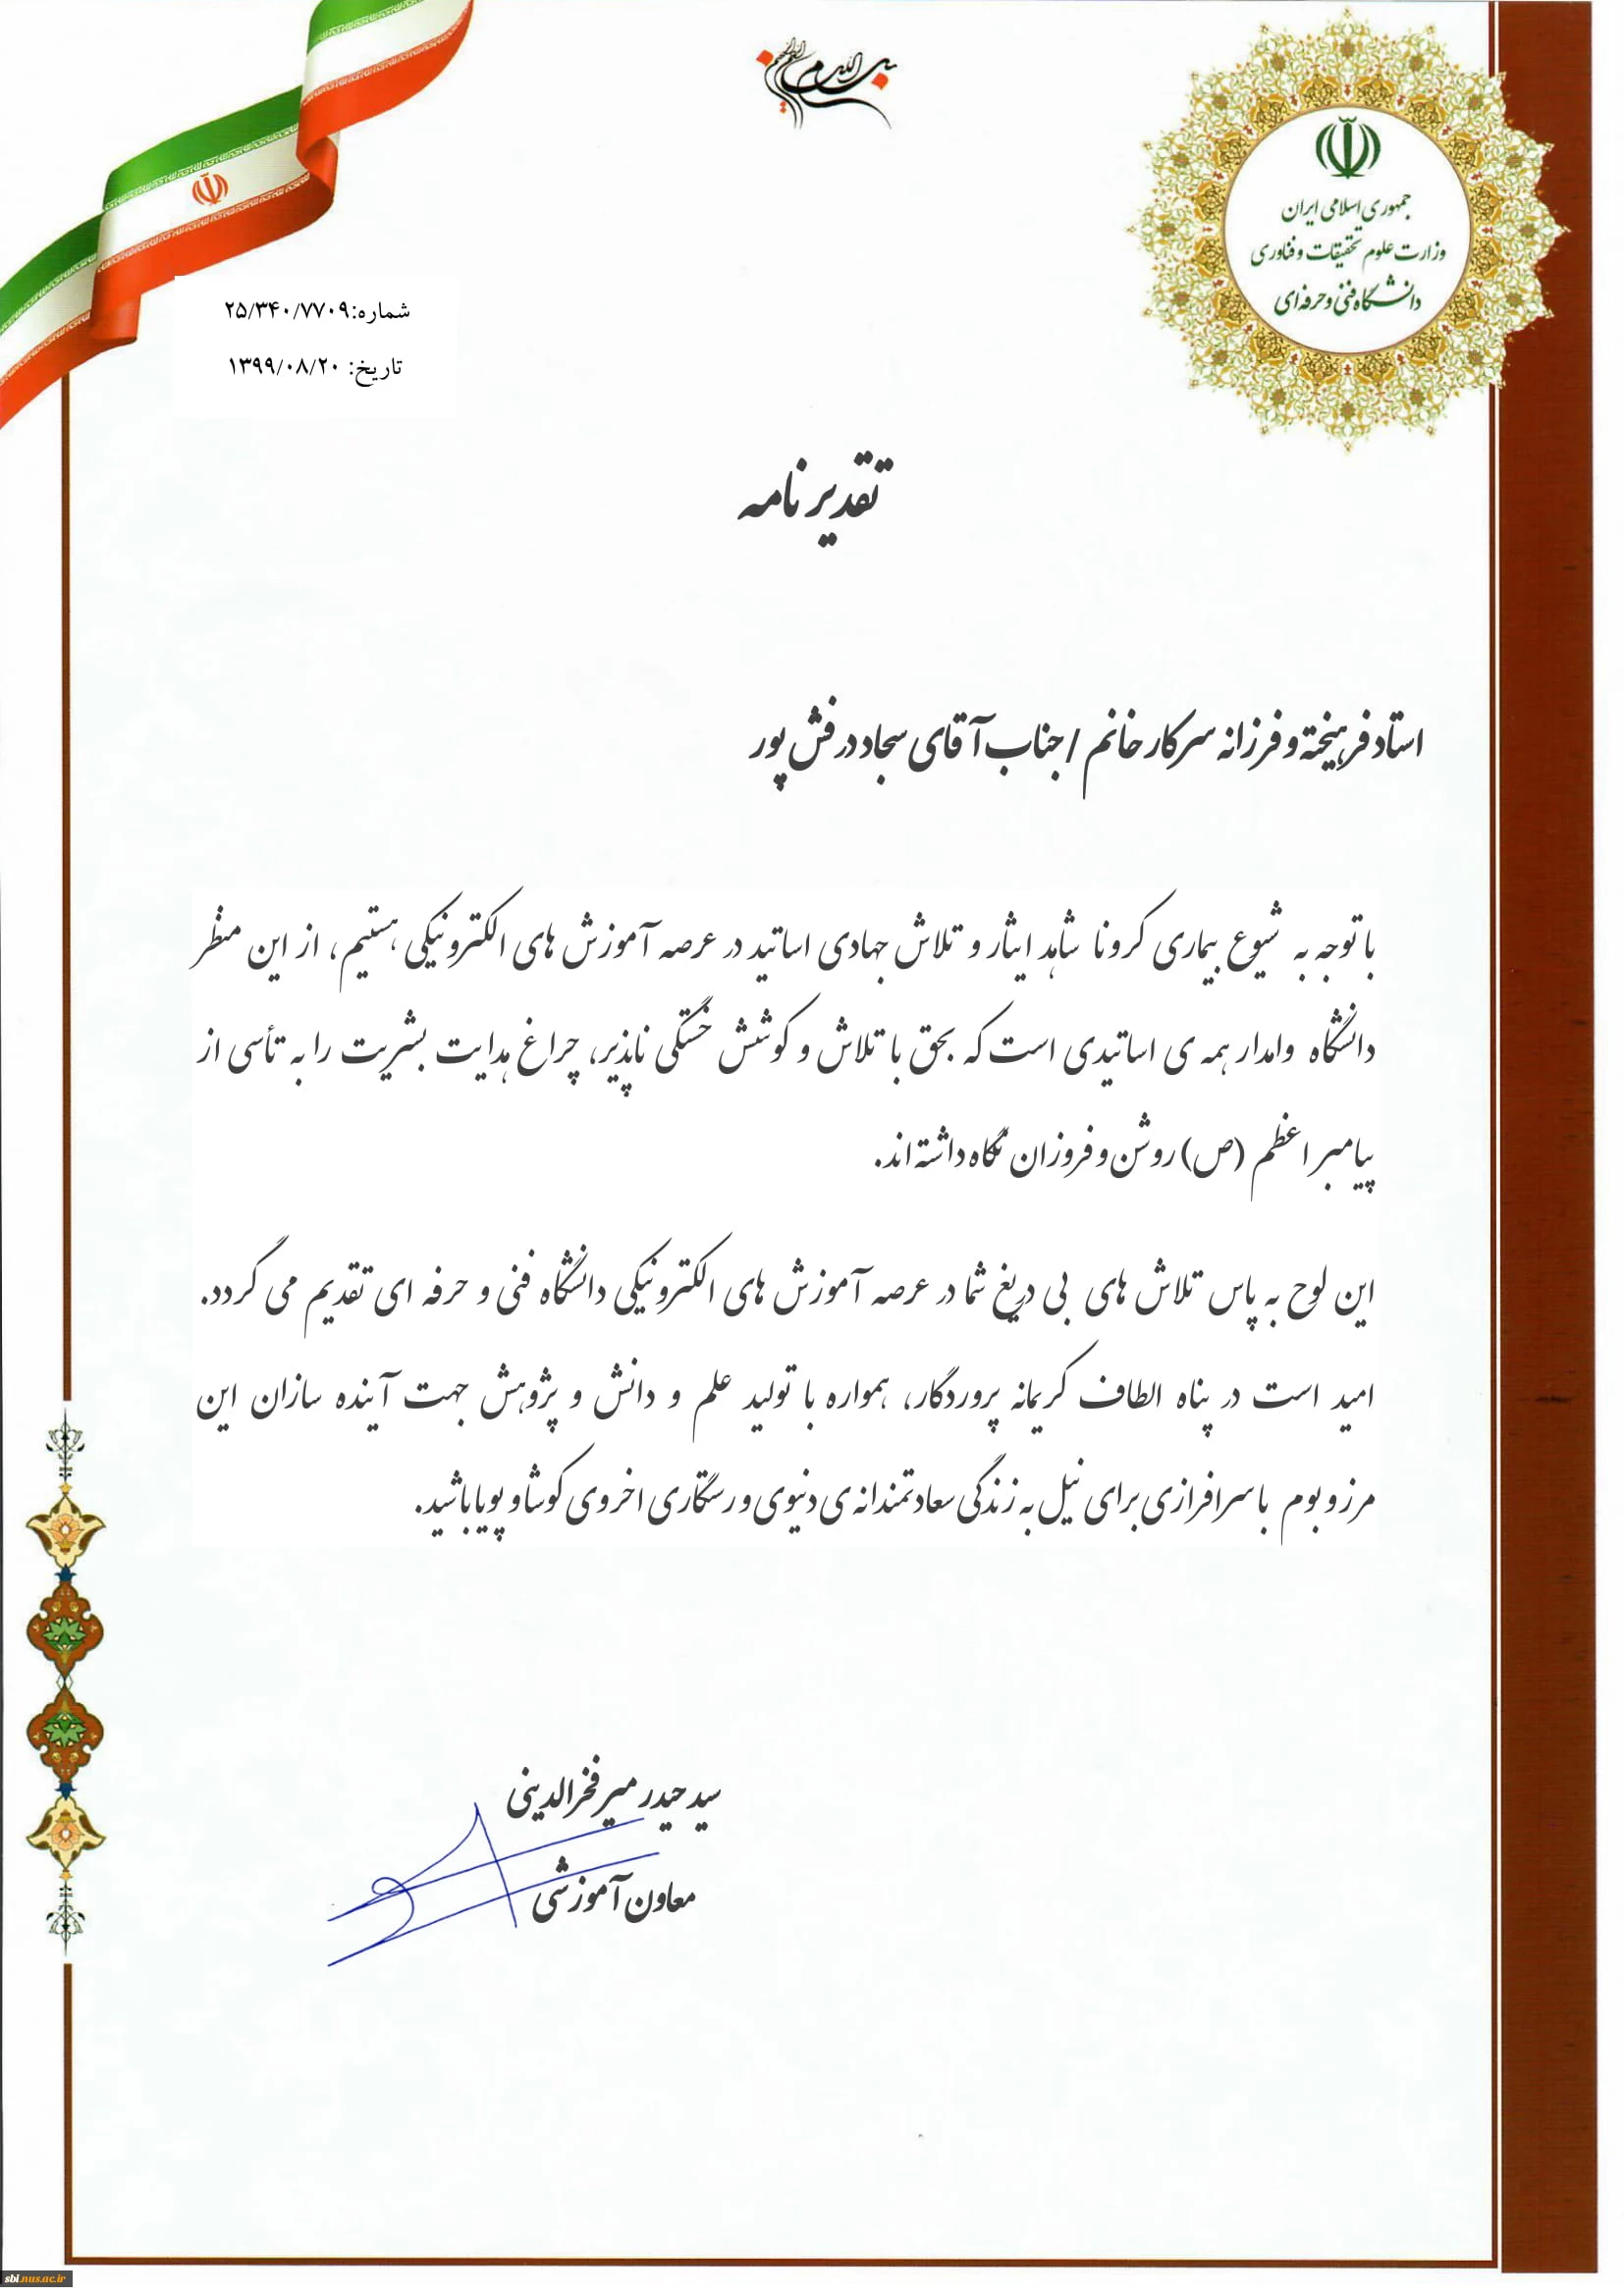 بسم الله الرحمن الرحیم
جمهوری اسلامی ایران
وزارت علوم تحقیقات و فناوری
دانشگاه فنی و حرفه‌ای
شماره:۲۵/۳۴۰/۷۷۰۹
تاریخ: ۱۳۹۹/۰۸/۲۰
تقدیر نامه
استاد فرهیخته و فرزانه سرکار خانم / جناب آقای سجاد درفش پور
با توجه به شیوع بیماری کرونا شاهد ایثار و تلاش جهادی اساتید در عرصه آموزش های الکترونیکی هستیم، از این منظر
دانشگاه وامدار همه ی اساتیدی است که بحق با تلاش و کوشش خستگی ناپذیر، چراغ هدایت بشریت را به تأسی از
پیامبر اعظم (ص) روشن و فروزان نگاه داشته اند.
این لوح به پاس تلاش های بی دریغ شما در عرصه آموزش های الکترونیکی دانشگاه فنی و حرفه ای تقدیم می گردد.
امید است در پناه الطاف کریمانه پروردگار، همواره با تولید علم و دانش و پژوهش جهت آینده سازان این
مرز و بوم با سرافرازی برای نیل به زندگی سعادتمندانه ی دنیوی و رستگاری اخروی کوشا و پویا باشید.
سید حیدر میرفخرالدینی
معاون آموزشی
sbi.nus.ac.ir